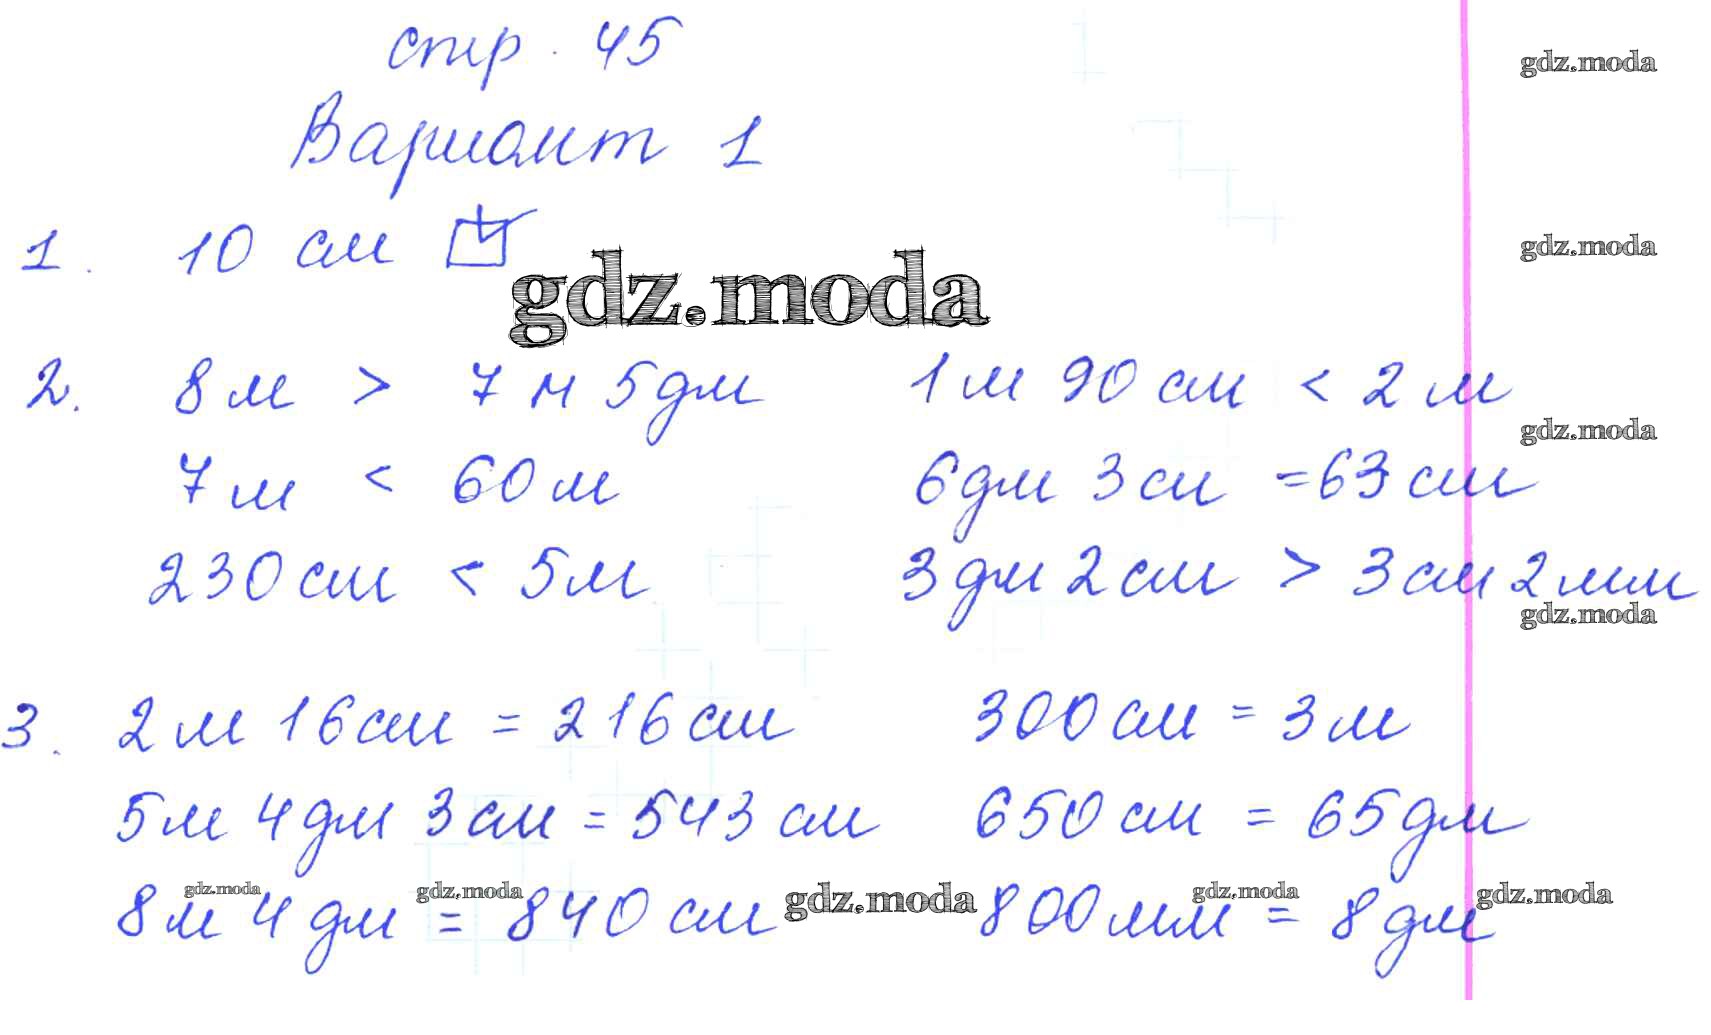 стр. 45
gdz.moda
Вариант 1
1. 10 см
gdz.moda
gdz.moda
2. 8 м > 7 м 5 дм 1 м 90 см < 2 м
gdz.moda
7 м < 60 м 6 дм 3 см = 63 см
230 см < 5 м 3 дм 2 см > 3 см 2 мм
gdz.moda
3. 2 м 16 см = 216 см 300 см = 3 м
5 м 4 дм 3 см = 543 см 650 см = 65 дм
gdz.moda gdz.moda gdz.moda gdz.moda gdz.moda
8 м 4 дм = 840 см 800 мм = 8 дм